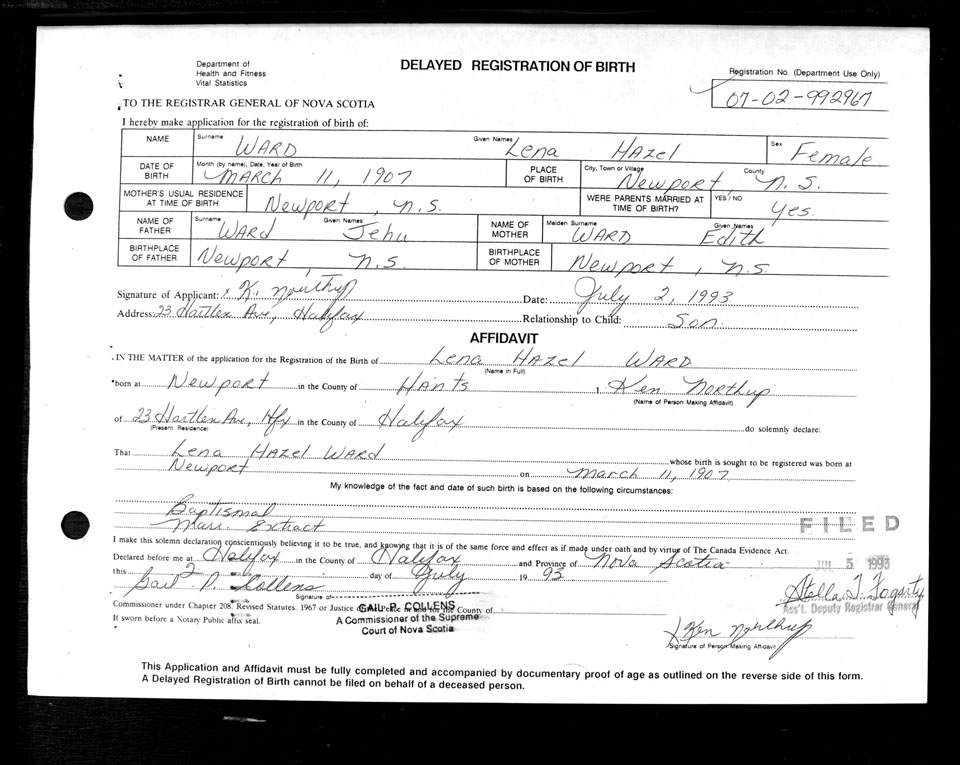 Department of
Health and Fitness
Vital Statistics
DELAYED REGISTRATION OF BIRTH
Registration No. (Department Use Only)
07-02-992967
TO THE REGISTRAR GENERAL OF NOVA SCOTIA
I hereby make application for the registration of birth of:
NAME Surname WARD Given Names Lena HAZel Sex Female
DATE OF BIRTH Month (by name), Date, Year of Birth MARCH 11, 1907 PLACE OF BIRTH City, Town or Village Newport, County N.S.
MOTHER'S USUAL RESIDENCE AT TIME OF BIRTH Newport, N.S. WERE PARENTS MARRIED AT TIME OF BIRTH? YES / NO Yes.
NAME OF FATHER Surname WARd Given Names Jehu NAME OF MOTHER Maiden Surname WARD Given Names Edith
BIRTHPLACE OF FATHER Newport, N.S. BIRTHPLACE OF MOTHER Newport, N.S.
Signature of Applicant: x K. Northup Date: July 2, 1993
Address: 23 Hartlen Ave, Halifax Relationship to Child: Son
AFFIDAVIT
IN THE MATTER of the application for the Registration of the Birth of Lena HAZel WARD
(Name in Full)
born at Newport in the County of HANTS I, Ken Northup
(Name of Person Making Affidavit)
of 23 Hartlen Ave, Hfx in the County of Halifax do solemnly declare:
(Present Residence)
That Lena HAZel WARD whose birth is sought to be registered was born at
Newport on March 11, 1907
My knowledge of the fact and date of such birth is based on the following circumstances:
Baptismal
Marr. Extract
FILED
I make this solemn declaration conscientiously believing it to be true, and knowing that it is of the same force and effect as if made under oath and by virtue of The Canada Evidence Act.
Declared before me at Halifax in the County of Halifax and Province of Nova Scotia
JUL 5 1993
this 2 day of July 1993
Gail P. Collens
Signature of
Stella T. Fogarty
Ass't. Deputy Registrar General
Commissioner under Chapter 208, Revised Statutes, 1967 or Justice of the Peace in and for the County of
GAIL P. COLLENS
If sworn before a Notary Public affix seal.
A Commissioner of the Supreme
Court of Nova Scotia
x Ken Northup
Signature of Person Making Affidavit
This Application and Affidavit must be fully completed and accompanied by documentary proof of age as outlined on the reverse side of this form.
A Delayed Registration of Birth cannot be filed on behalf of a deceased person.